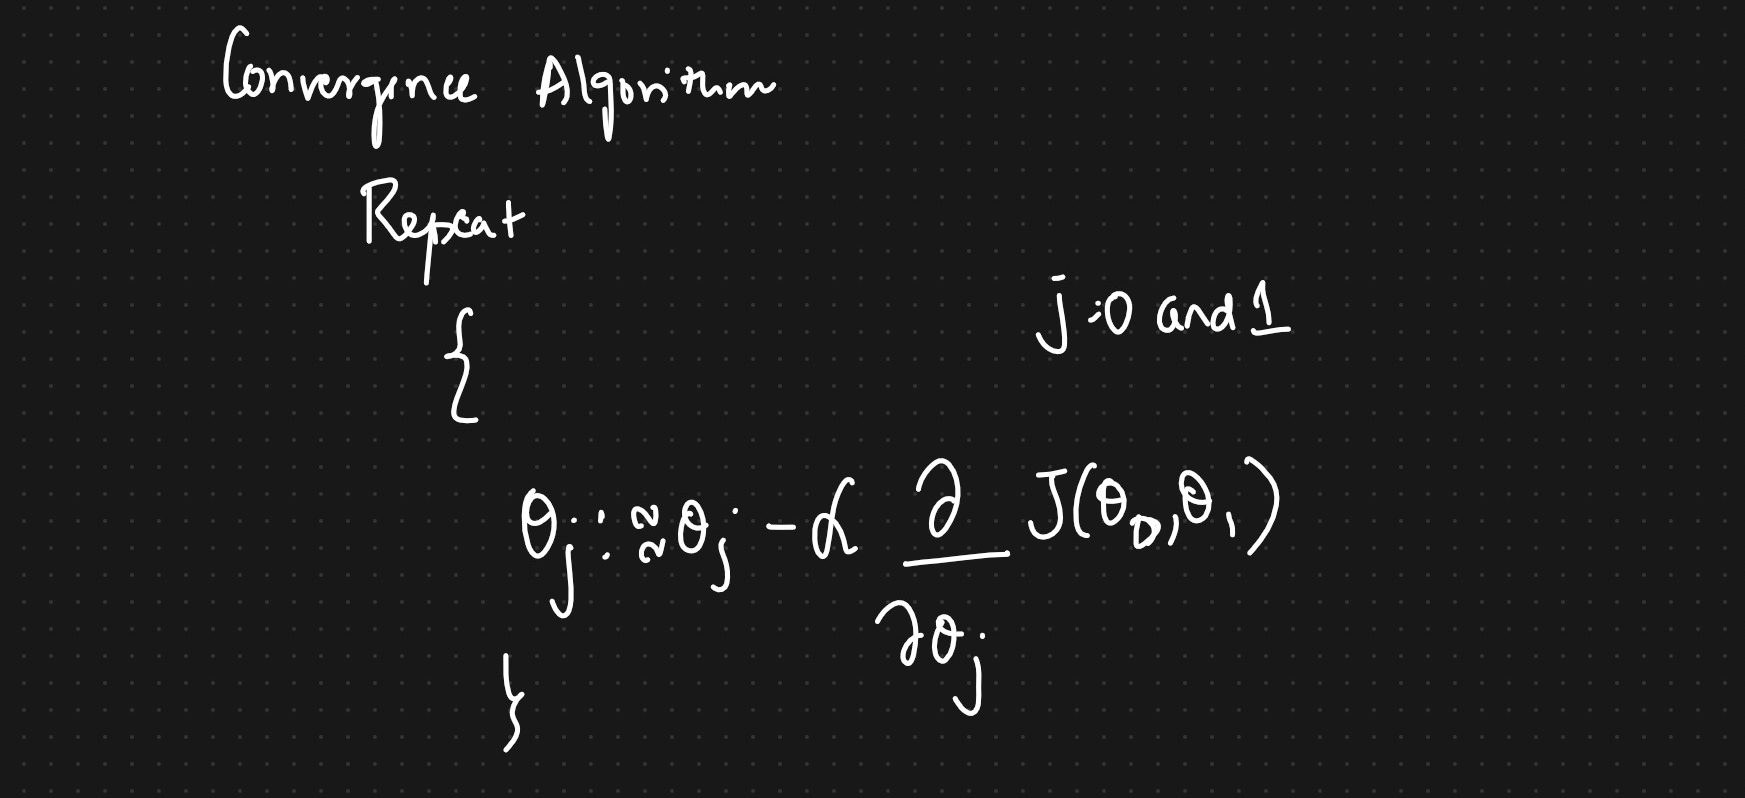 Convergence Algorithm
Repeat
j:0 and 1
{
θj :≈ θj - α ∂/∂θj J(θ0,θ1)
}